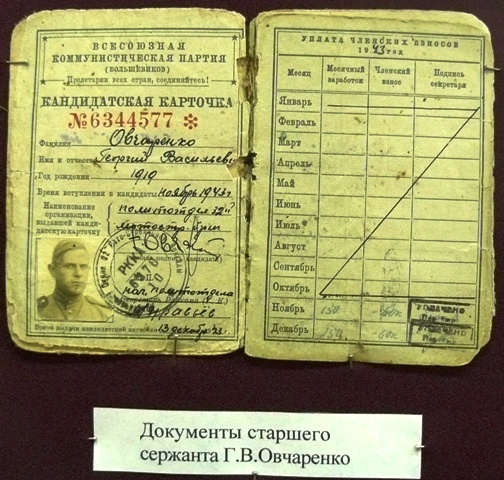 ВСЕСОЮЗНАЯ
КОММУНИСТИЧЕСКАЯ ПАРТИЯ
(БОЛЬШЕВИКОВ)
Пролетарии всех стран, соединяйтесь!
КАНДИДАТСКАЯ КАРТОЧКА
№ 6344577 *
Фамилия Овчаренко
Имя и отчество Георгий Васильев
Год рождения 1919
Время вступления в кандидаты ноябрь 1943г
Наименование
организации,
выдавшей канди-
датскую карточку
политотдел 32й
М.П.
нач. политотдела
Муравьёв
Время выдачи кандидатской карточки 13 декабр 43г.
УПЛАТА ЧЛЕНСКИХ ВЗНОСОВ
1943 год
Месяц
Месячный заработок
Членский взнос
Подпись секретаря
Январь
Февраль
Март
Апрель
Май
Июнь
Июль
Август
Сентябрь
Октябрь
Ноябрь 154 60к УПЛАЧЕНО
Декабрь 154 60к УПЛАЧЕНО
Документы старшего
сержанта Г.В.Овчаренко